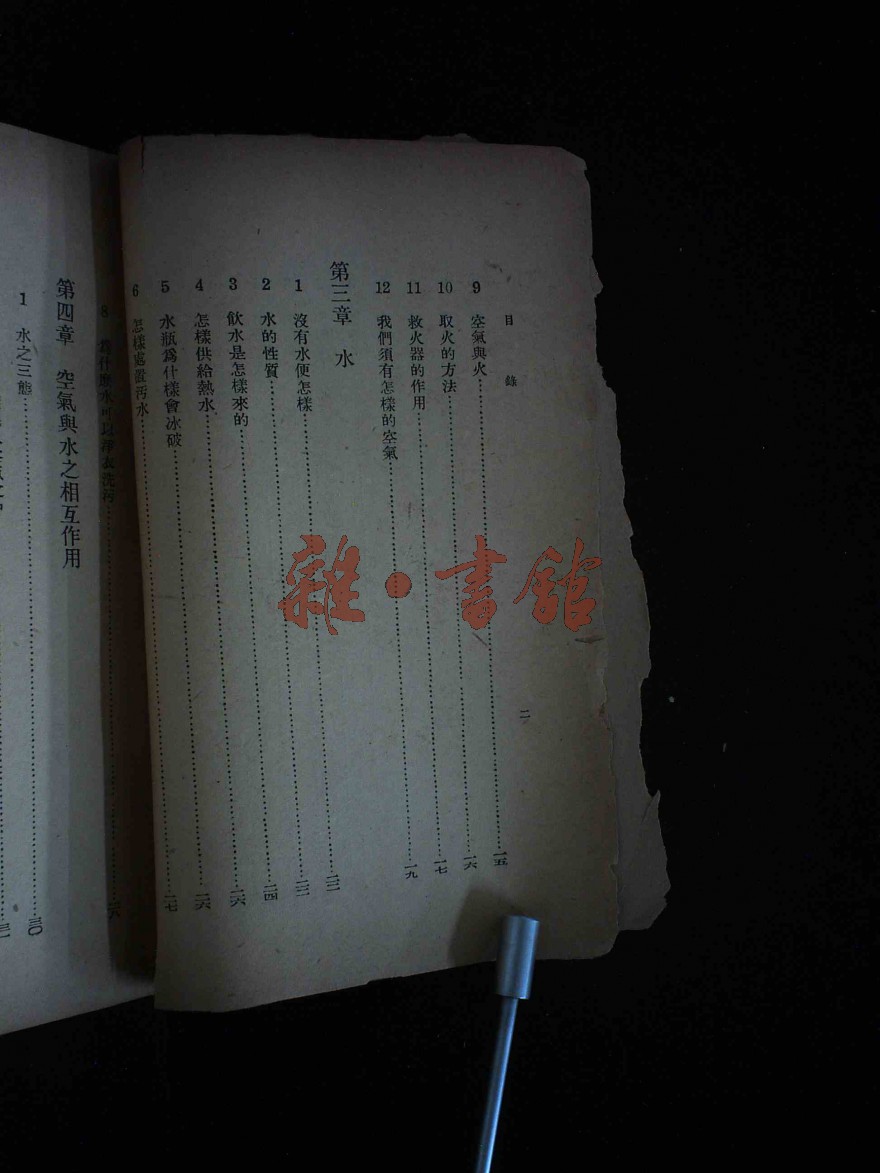 目錄
二
9 空氣與火……一五
10 取火的方法……一六
11 救火器的作用……一七
12 我們須有怎樣的空氣……一九
第三章 水
1 沒有水便怎樣……二二
2 水的性質……二二
3 飲水是怎樣來的……二四
4 怎樣供給熱水……二六
5 水瓶爲什樣會冰破……二六
6 怎樣處置污水……二七
8 爲什麽水可以
第四章 空氣與水之相互作用
1 水之三態……三〇
雜·書館